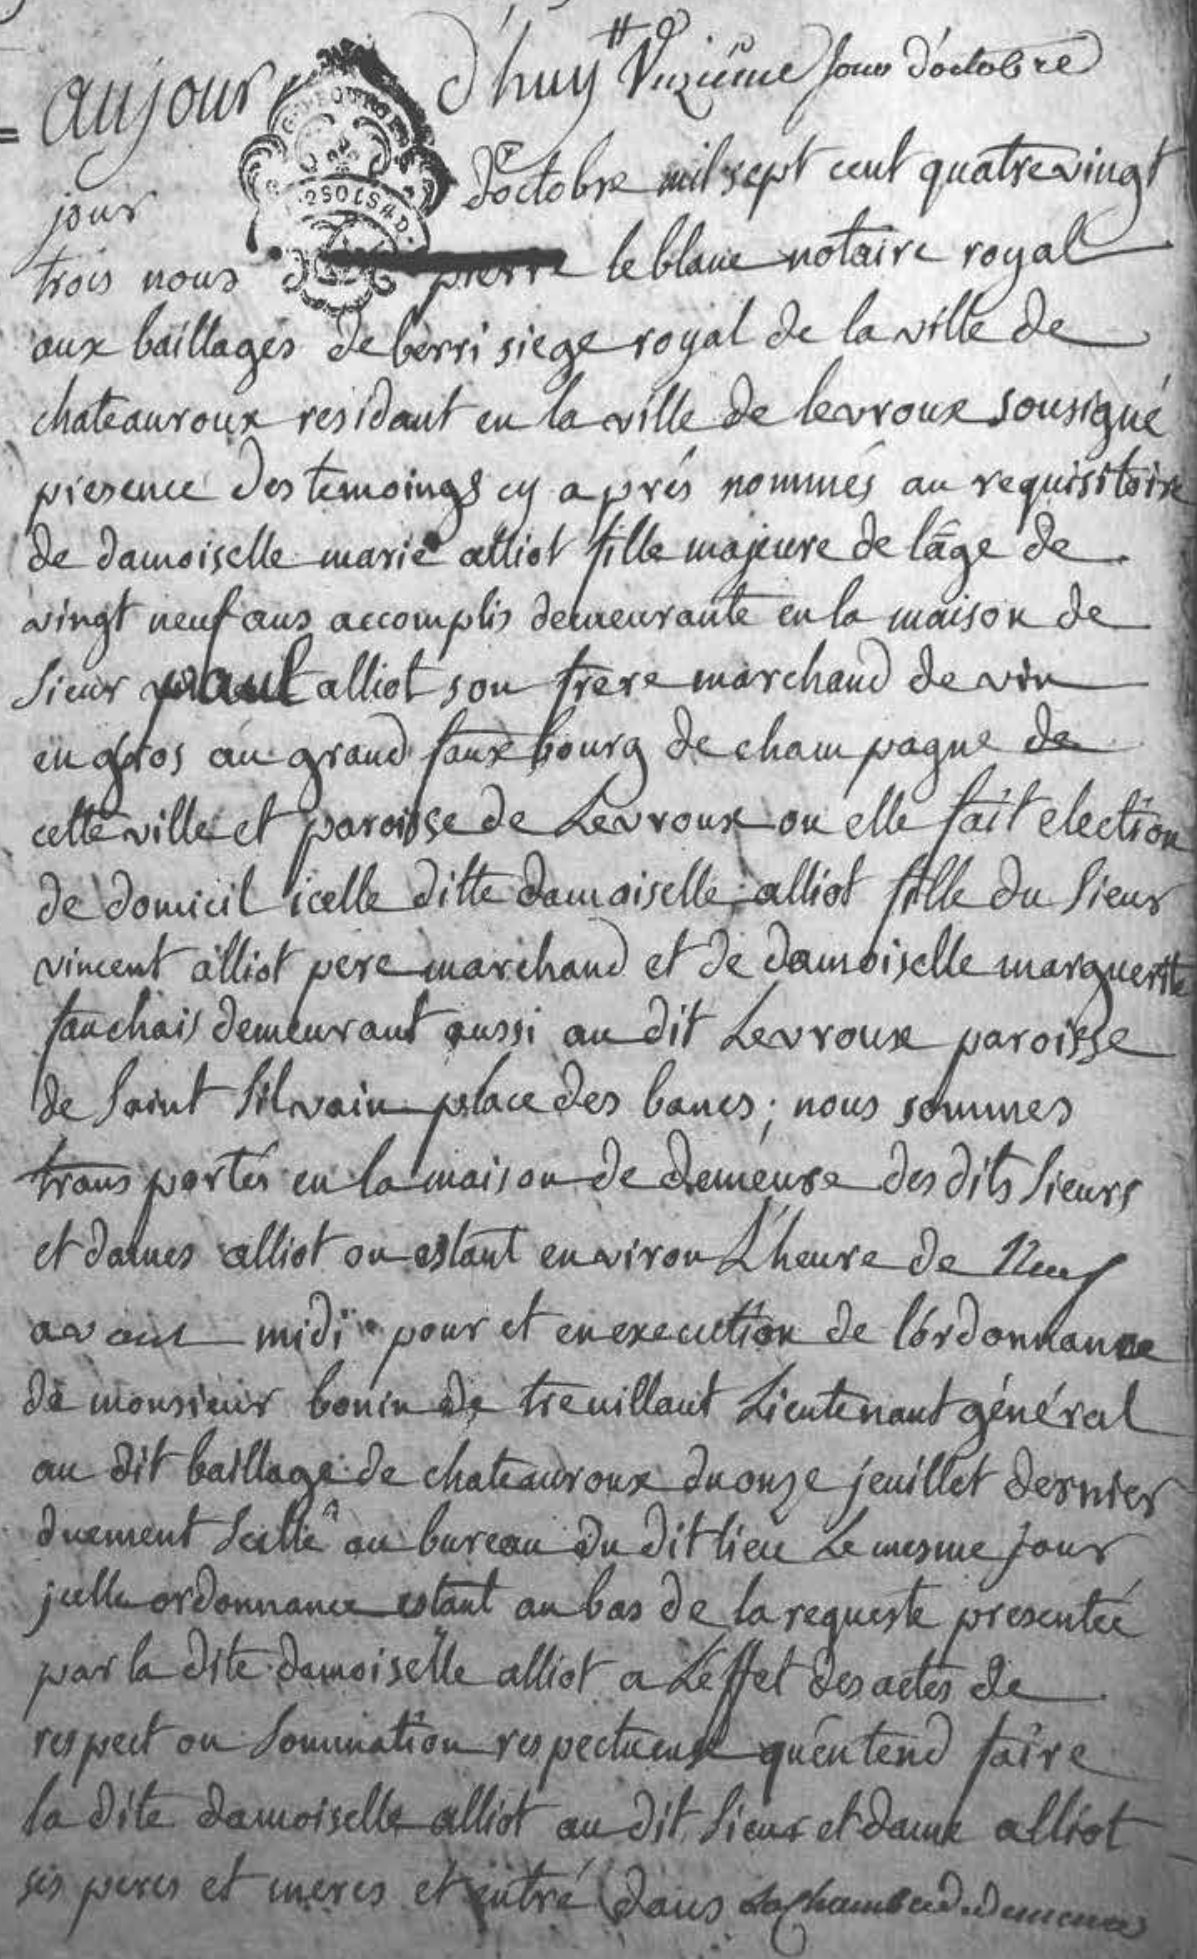 aujour d'huy Unzieme jour d'octobre
jour d'octobre mil sept cent quatrevingt
trois nous pierre leblanc notaire royal
aux baillages de berri siege royal de la ville de
chateauroux residant en la ville de levroux sousigné
presence des temoings cy aprés nommés au requisitoire
de damoiselle marie alliot fille majeure de l'âge de
vingt neuf ans accomplis demeurante en la maison de
sieur paul alliot son frere marchand de vin
en gros au grand faux bourg de champagne de
cette ville et paroisse de Levroux ou elle fait election
de domicil icelle ditte damoiselle alliot fille du sieur
vincent alliot pere marchand et de damoiselle margueritte
fauchais demeurant aussi au dit Levroux paroisse
de saint silvain place des bancs ; nous sommes
transportés en la maison de demeure des dits sieurs
et dames alliot ou estant environ L'heure de Neuf
avant midi pour et en execution de l'ordonnance
de monsieur bonin de treuillaut Lieutenant général
au dit baillage de chateauroux du onze jeuillet dernier
duement scellé au bureau du dit lieu Le mesme jour
jcelle ordonnance estant au bas de la requeste presentée
par la dite damoiselle alliot a L'effet des actes de
respect ou sommation respectueuse qu'entend faire
la dite damoiselle alliot au dit sieur et dame alliot
ses peres et meres et entré dans La chambre de demeure